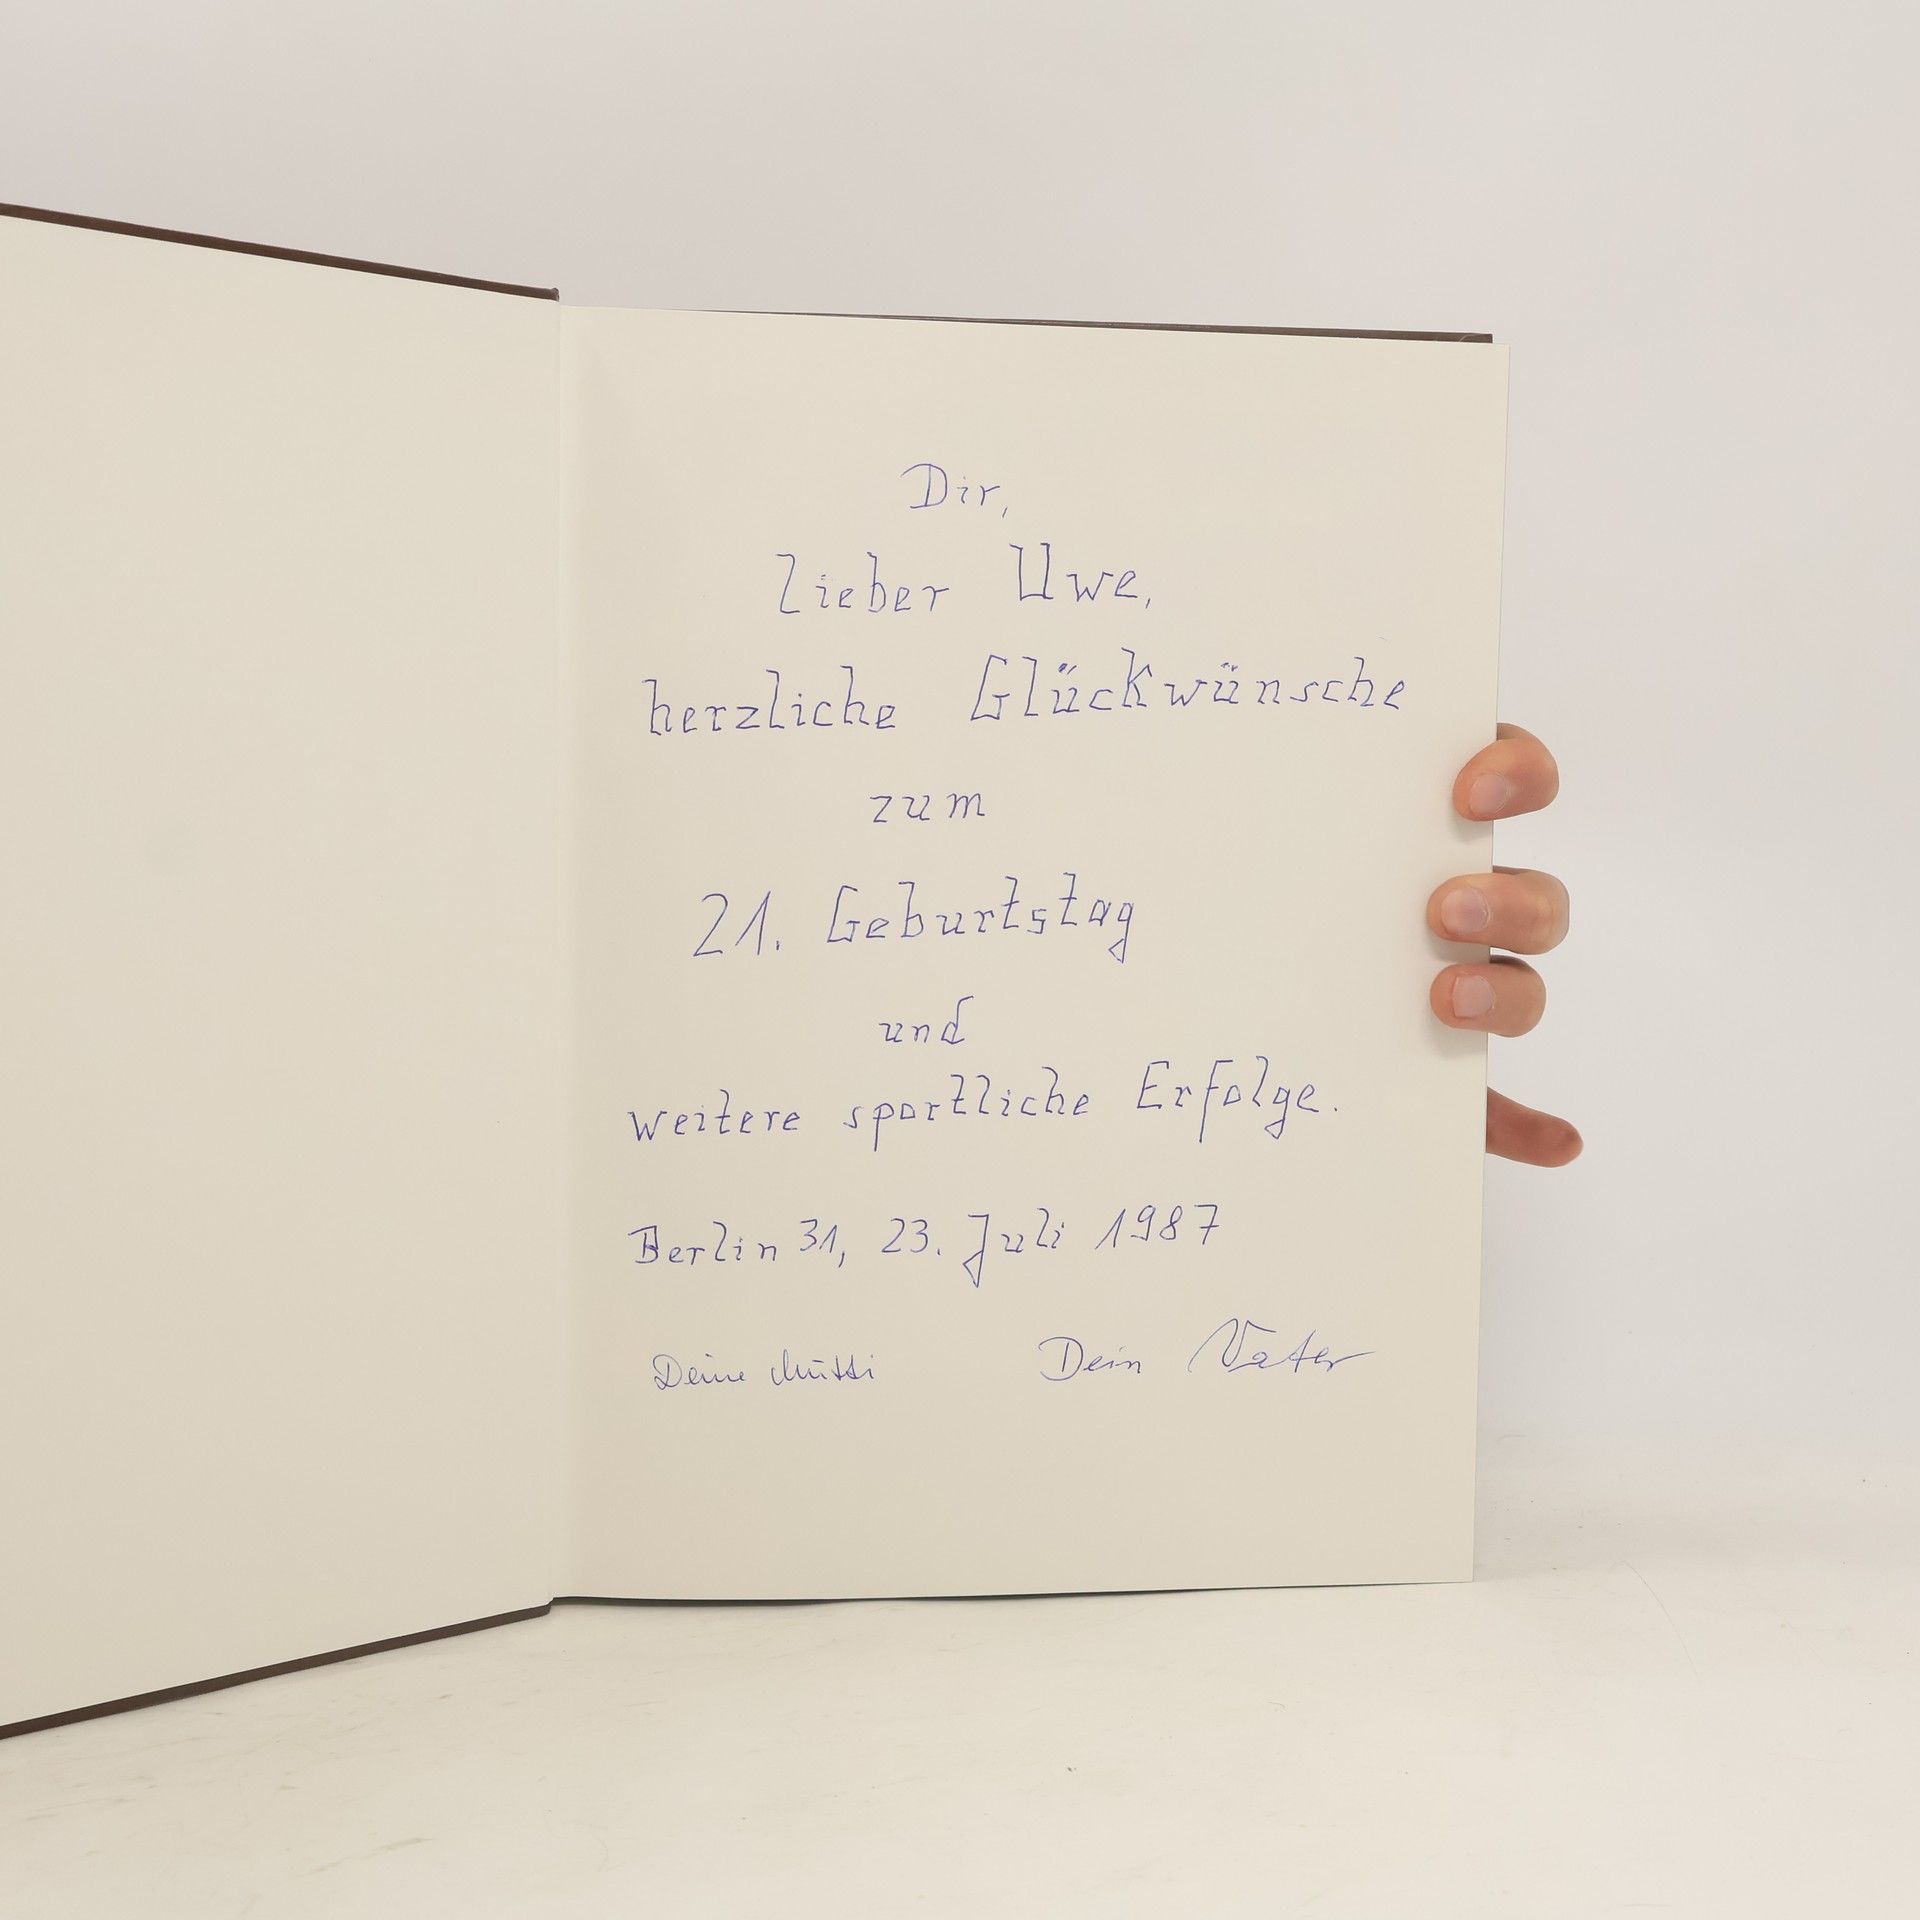 Dir,
lieber Uwe,
herzliche Glückwünsche
zum
21. Geburtstag
und
weitere sportliche Erfolge.
Berlin 31, 23. Juli 1987
Deine Mutti Dein Vater